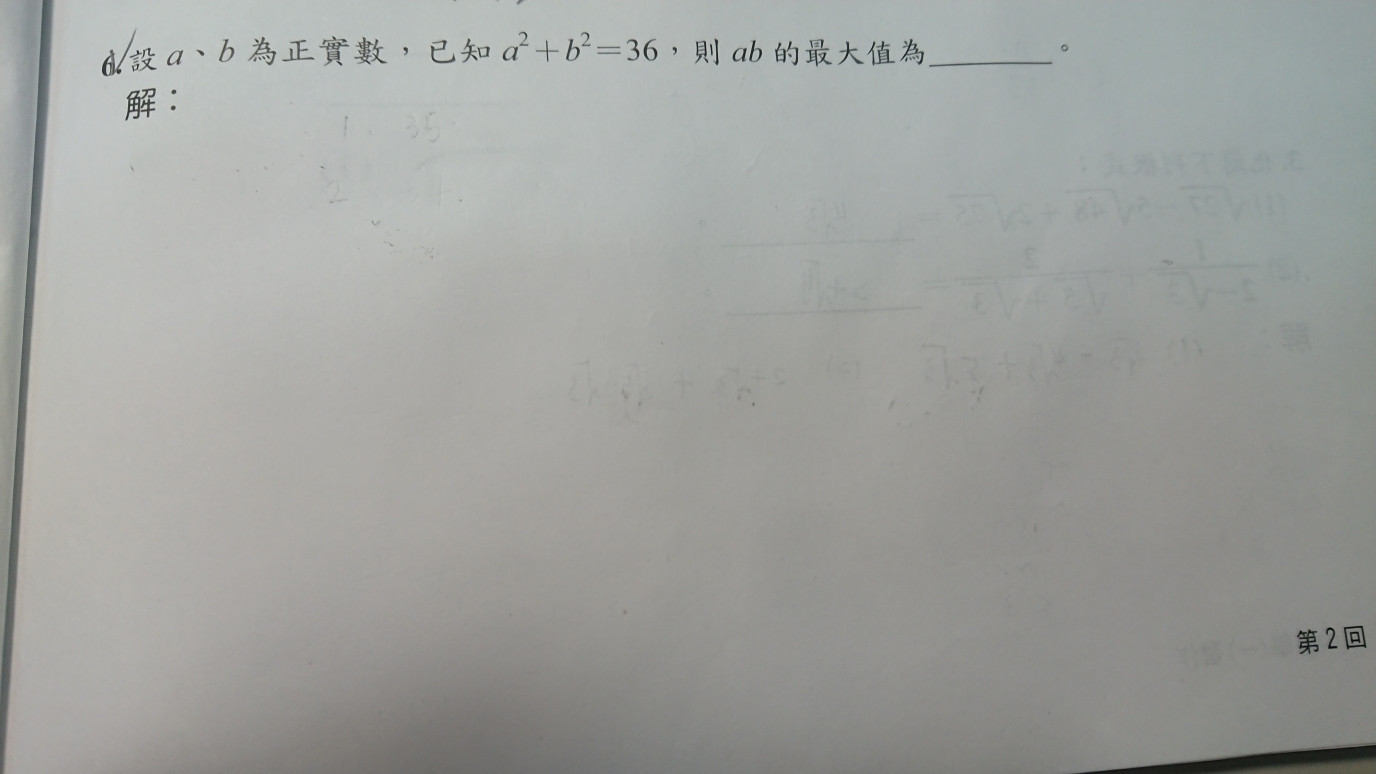 6. 設 a、b 為正實數，已知 a²+b²=36，則 ab 的最大值為______。
解：
1. 35
2
第2回